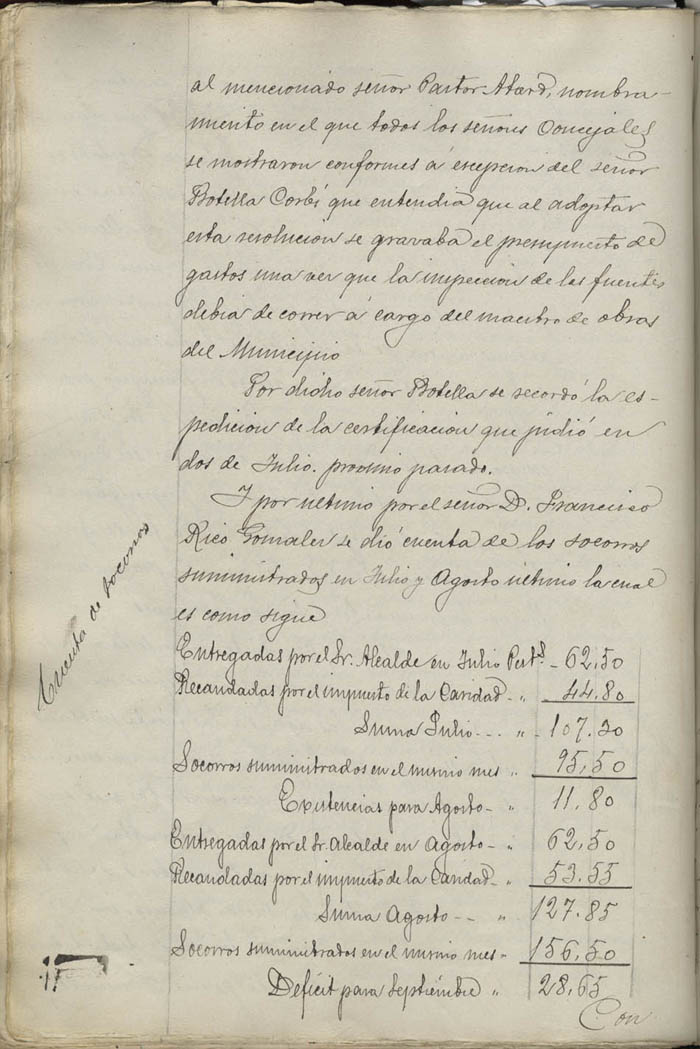 al mencionado señor Pastor Atard, nombra-
miento en el que todos los señores Concejales
se mostraron conformes á escepcion del señor
Botella Corbí que entendia que al adoptar
esta resolucion se gravaba el presupuesto de
gastos una vez que la inspeccion de las fuentes
debia de correr á cargo del maestro de obras
del Municipio
Por dicho señor Botella se recordó la es-
pedicion de la certificacion que pidió en
dos de Julio. procsimo pasado.
Y por ultimo por el señor D. Francisco
Rico Gomzalez se dió cuenta de los socorros
suministrados en Julio y Agosto ultimo la cual
es como sigue
Cuenta de socorros
Entregadas por el Sr. Alcalde en Julio Pets. - 62,50
Recaudadas por el impuesto de la Caridad - „ 44.80
Suma Julio - - - „ - 107.30
Socorros suministrados en el mismo mes „ 95,50
Existencias para Agosto - „ 11.80
Entregadas por el Sr. Alcalde en Agosto - „ 62,50
Recaudadas por el impuesto de la Caridad - „ 53.55
Suma Agosto - - „ 127.85
Socorros suministrados en el mismo mes - „ 156,50
Déficit para Septiembre „ 28,65
Con